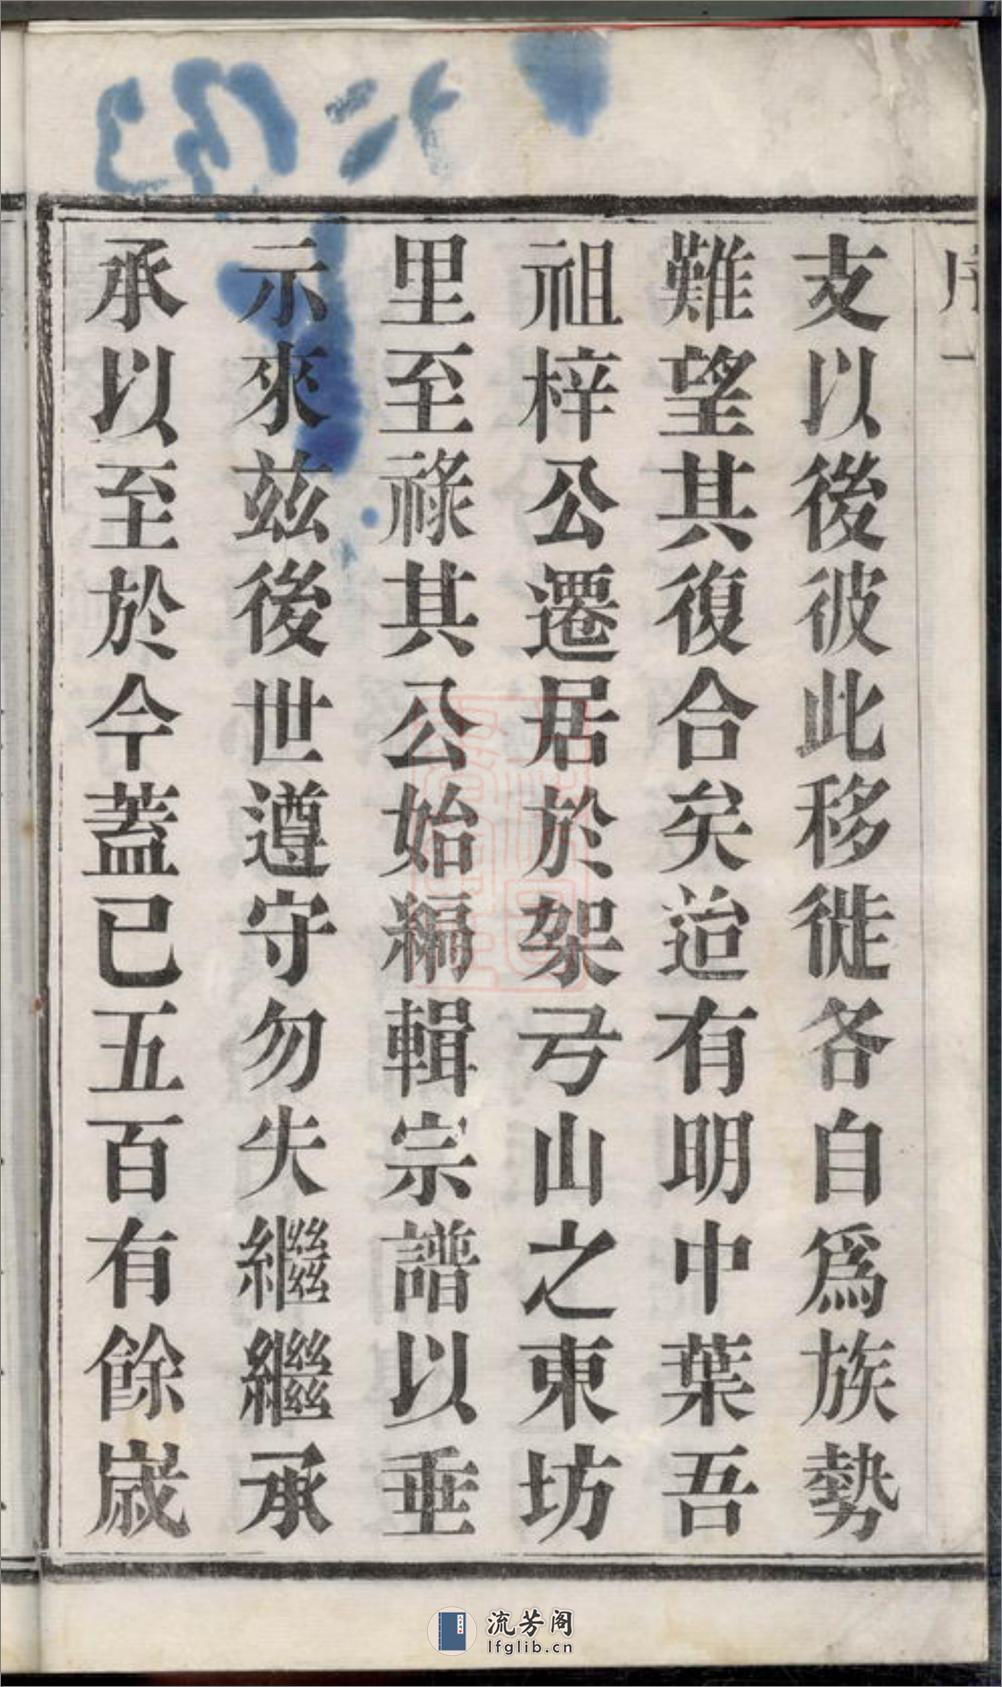 序 一
支以後彼此移徙各自爲族勢
難望其復合矣迨有明中葉吾
祖梓公遷居於架弓山之東坊
里至祿其公始編輯宗譜以垂
示來茲後世遵守勿失繼繼承
承以至於今蓋已五百有餘歲
流芳阁
lfglib.cn